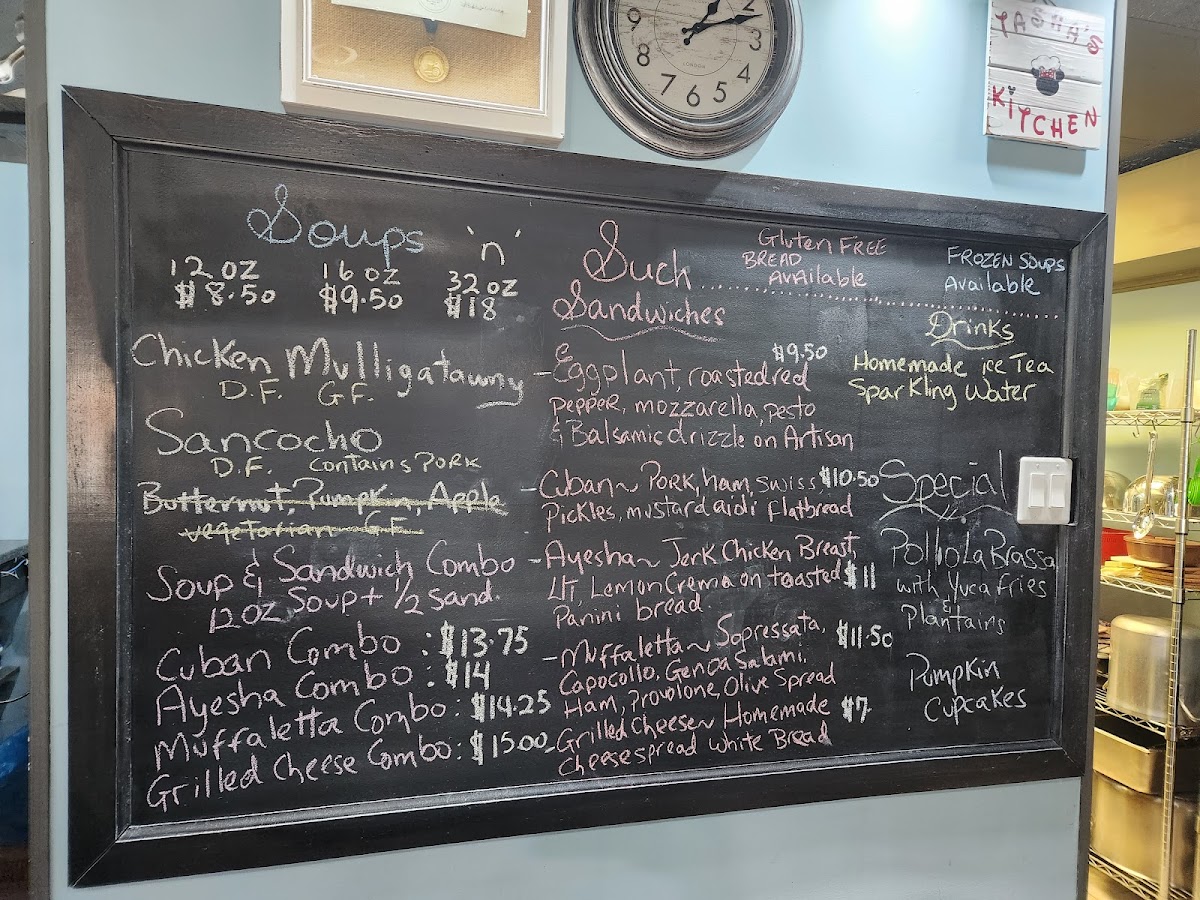 TASHA'S
KITCHEN
9
2
3
4
5
6
7
8
LONDON
Soups 'n'
12 oz
$8.50
16 oz
$9.50
32 oz
$18
Chicken Mulligatawny
D.F. G.F.
Sancocho
D.F. contains PORK
Butternut, Pumpkin, Apple
vegetarian G.F.
Soup & Sandwich Combo
12 oz Soup + 1/2 Sand.
Cuban Combo : $13.75
Ayesha Combo : $14
Muffaletta Combo : $14.25
Grilled Cheese Combo : $15.00
Such
Sandwiches
Gluten FREE
BREAD
Available
$9.50
- Eggplant, roasted red
pepper, mozzarella, pesto
& Balsamic drizzle on Artisan
- Cuban ~ PORK, ham, swiss, $10.50
Pickles, mustard aidi flatbread
- Ayesha ~ Jerk Chicken Breast,
LT, Lemon Crema on toasted $11
Panini bread
- Muffaletta ~ Sopressata, $11.50
Capocollo, Genoa Salami,
Ham, Provolone, Olive Spread
- Grilled Cheese ~ Homemade $7.
cheesespread white Bread
FROZEN SOUPS
Available
Drinks
Homemade ice Tea
Sparkling Water
Special
Pollo La Brassa
with Yuca fries
&
Plantains
Pumpkin
Cupcakes